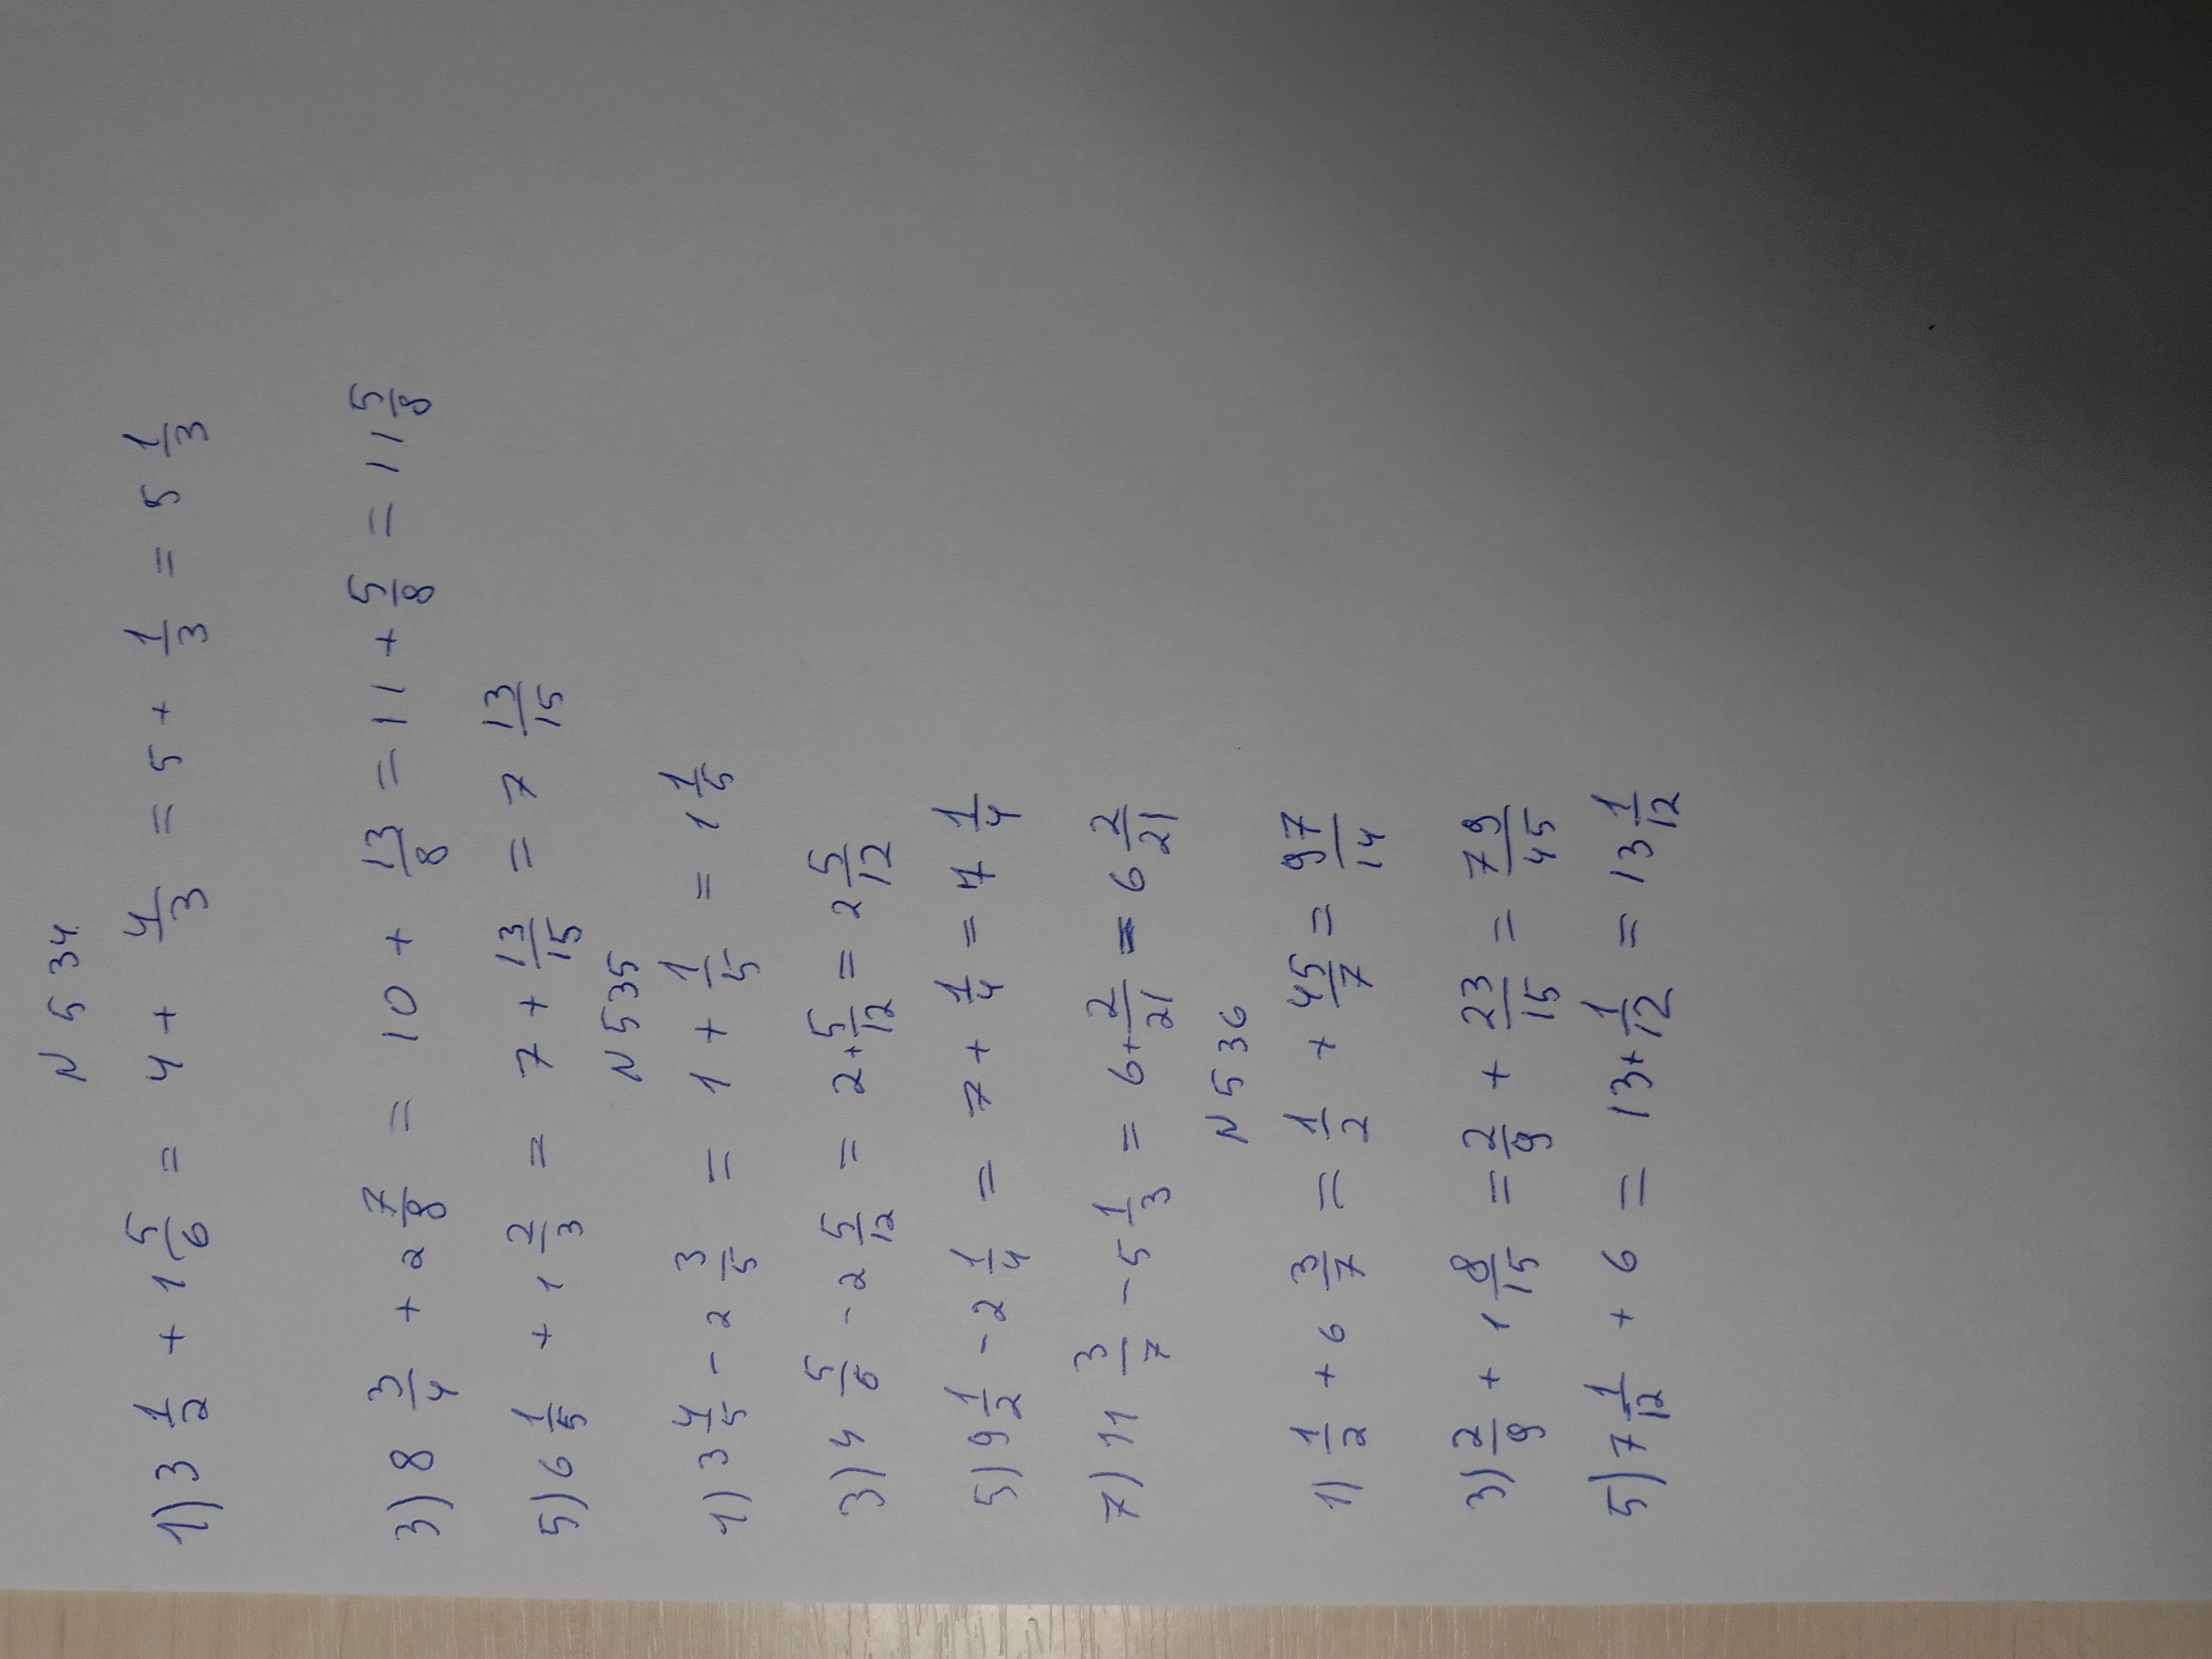 N 534
1) 3 1/2 + 1 5/6 = 4 + 4/3 = 5 + 1/3 = 5 1/3
3) 8 3/4 + 2 7/8 = 10 + 13/8 = 11 + 5/8 = 11 5/8
5) 6 1/5 + 1 2/3 = 7 + 13/15 = 7 13/15
N 535
1) 3 4/5 - 2 3/5 = 1 + 1/5 = 1 1/5
3) 4 5/6 - 2 5/12 = 2 + 5/12 = 2 5/12
5) 9 1/2 - 2 1/4 = 7 + 1/4 = 7 1/4
7) 11 3/7 - 5 1/3 = 6 + 2/21 = 6 2/21
N 536
1) 1/2 + 6 3/7 = 1/2 + 45/7 = 97/14
3) 2/9 + 1 8/15 = 2/9 + 23/15 = 79/45
5) 7 1/12 + 6 = 13 + 1/12 = 13 1/12